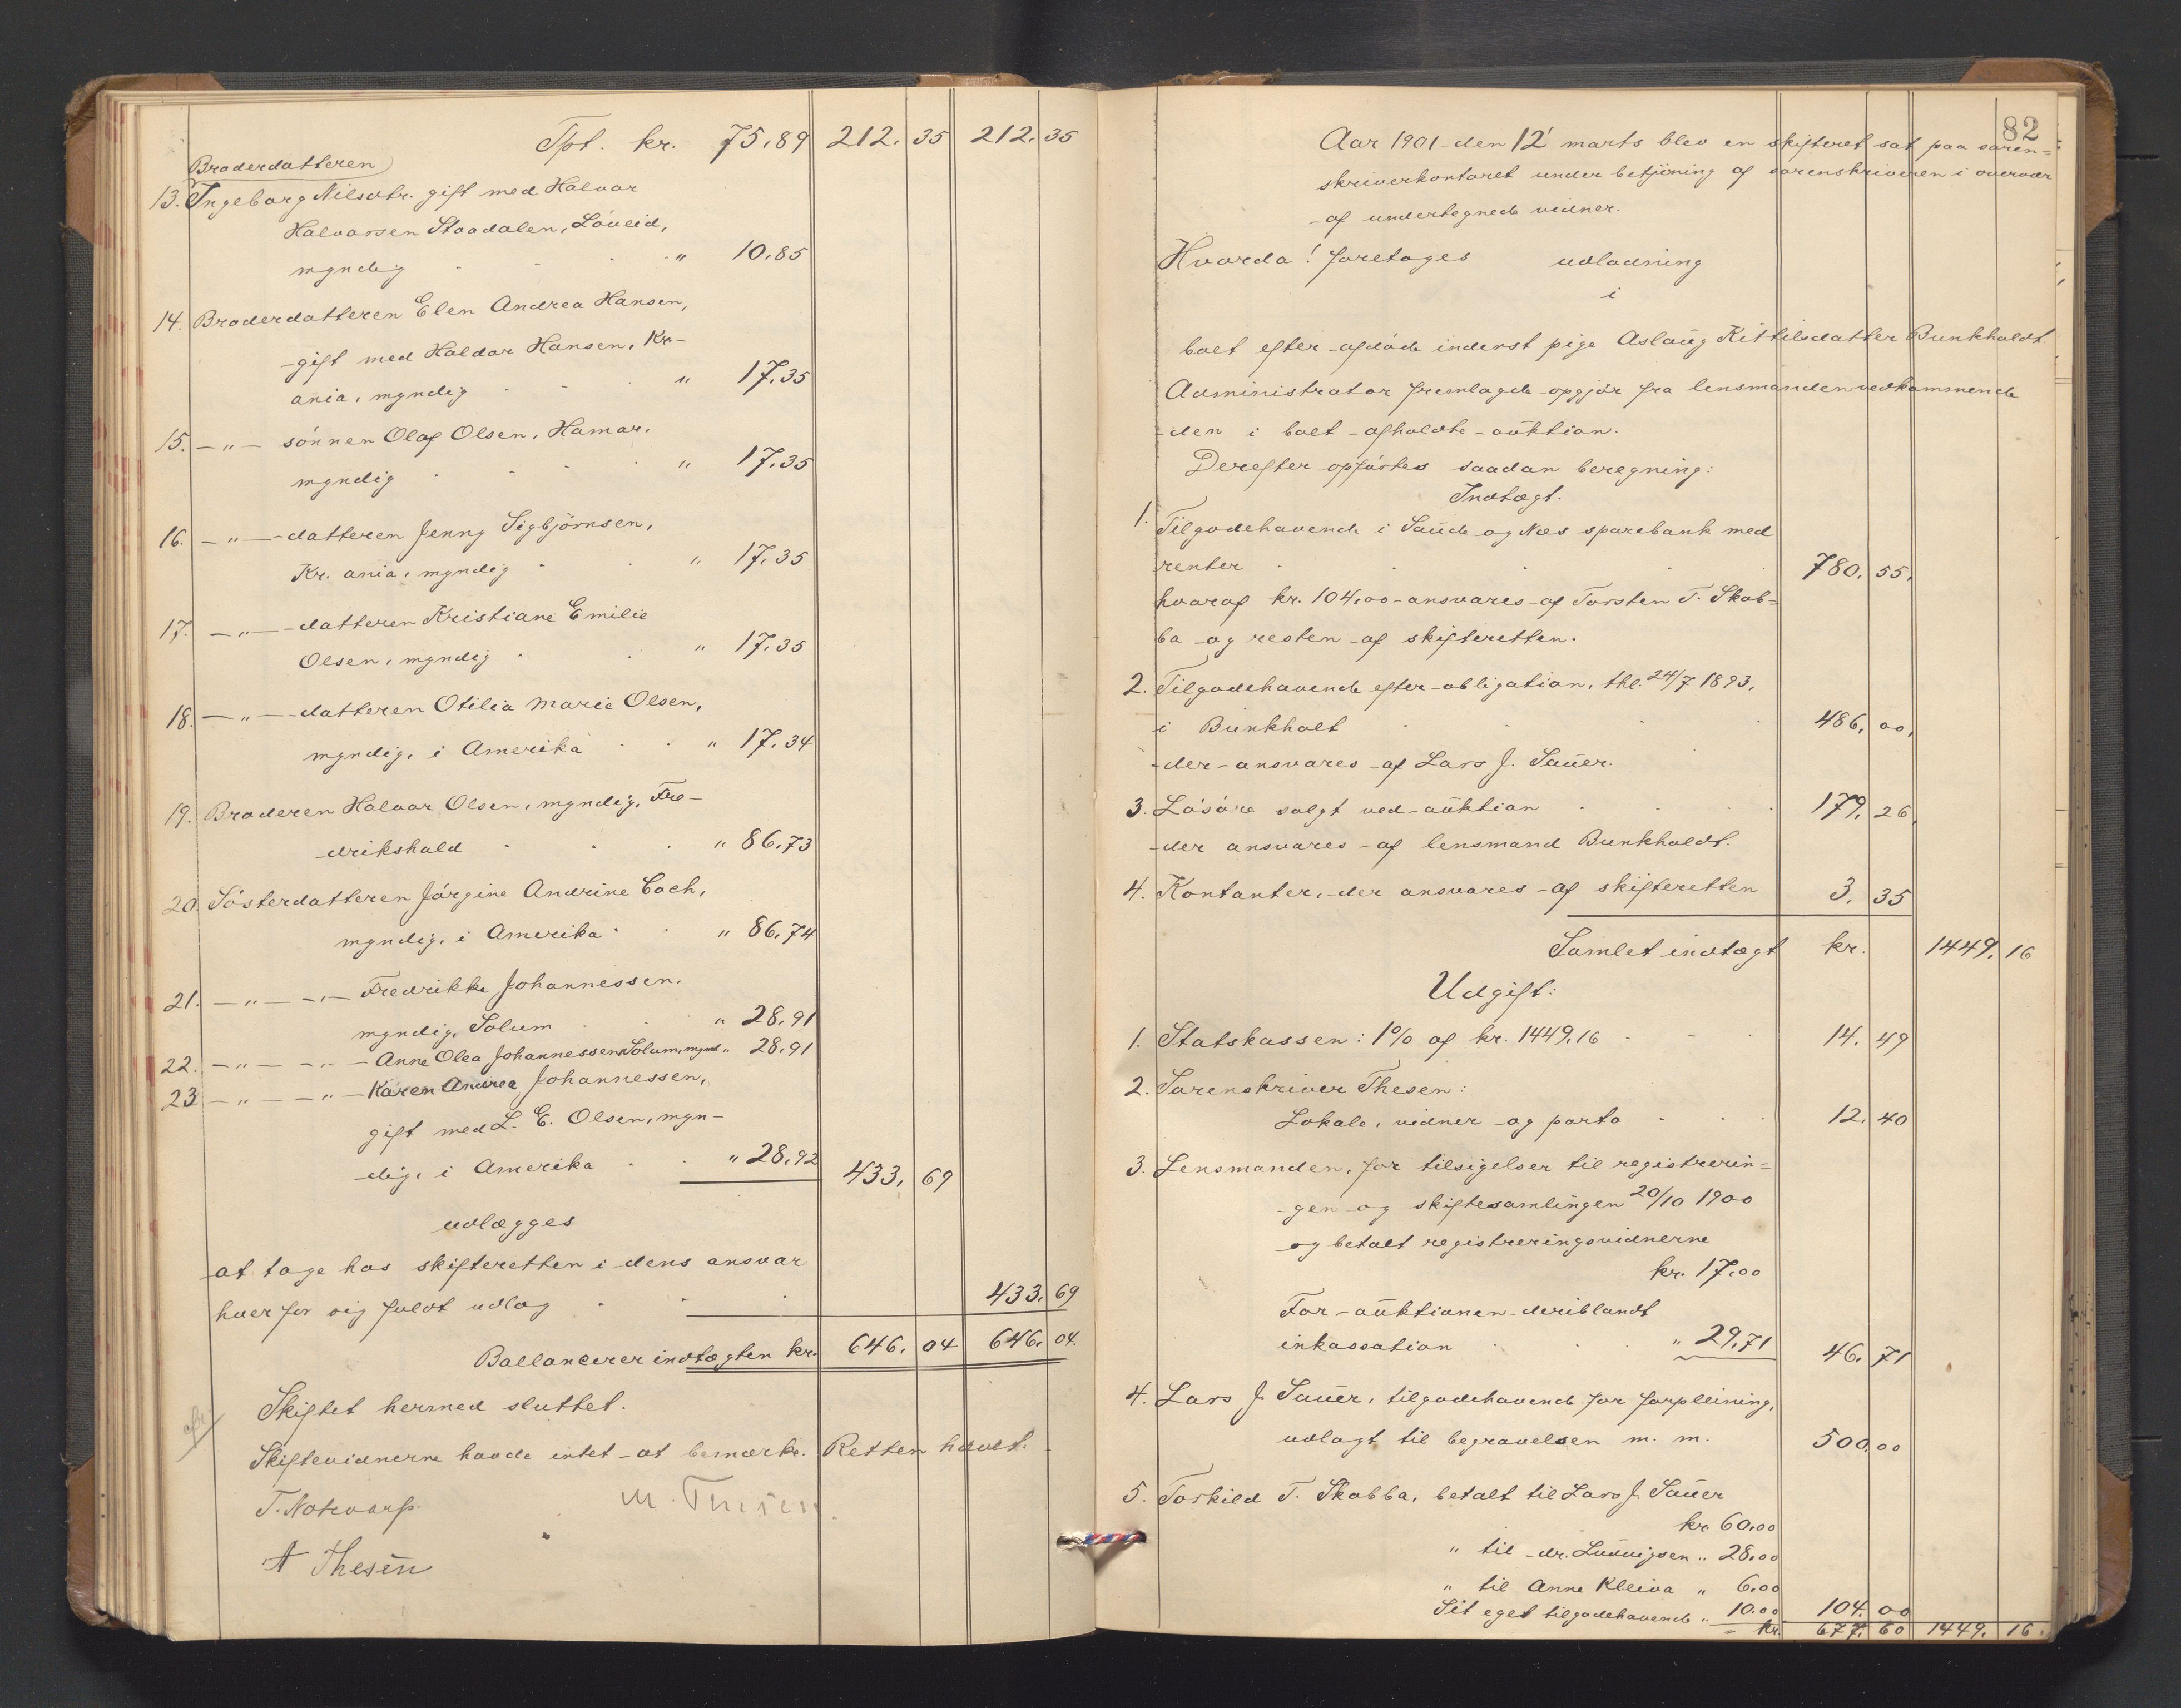 Tpt. kr. 75,89 212, 35 212, 35
Broderdatteren
13. Ingeborg Nilsdtr. gift med Halvor
Halvorsen Staadalen, Löveid,
myndig " 10,85
14. Broderdatteren Elen Andrea Hansen,
gift med Haldor Hansen, Kr-
ania, myndig " 17,35
15. — " — sönnen Olaf Olsen, Hamar.
myndig " 17,35
16. — " — datteren Jenny Sigbjörnsen,
Kr. ania, myndig " 17,35
17. — " — datteren Kristiane Emilie
Olsen, myndig " 17,35
18. — " — datteren Otilia Marie Olsen,
myndig, i Amerika " 17,34
19. Broderen Halvor Olsen, myndig, Fre-
drikshald " 86,73
20. Sösterdatteren Jörgine Andrine Coch,
myndig, i Amerika " 86,74
21. — " — — " — Fredrikke Johannessen,
myndig, Solum " 28,91
22. — " — — " — Anne Olea Johannessen, Solum, mynd. " 28,91
23 — " — — " — Karen Andrea Johannessen,
gift med L. E. Olsen, myn-
dig, i Amerika " 28,92 433, 69
udlægges
at tage hos skifteretten i dens ansvar
hver for sig fuldt udlæg 433, 69
Ballancerer indtægten kr. 646, 04 646, 04.
Skiftet hermed sluttet.
Skiftevidnerne havde intet at bemærke. Retten hævet.
M. Thesen.
T. Notevarp.
A Thesen
82
Aar 1901 den 12' marts blev en skifteret sat paa soren-
skriverkontoret under betjöning af sorenskriveren i overvær
af undertegnede vidner.
Hvorda! foretoges udlodning
i
boet efter afdöde inderst pige Aslaug Kittilsdatter Bunkholdt.
Administrator fremlagde opgjör fra lensmanden vedkommende
den i boet afholdte auktion.
Derefter opförtes saadan beregning:
Indtægt.
1. Tilgodehavende i Saude og Næs sparebank med
renter 780, 55,
hvoraf kr. 104,00 ansvares af Torsten T. Skob-
ba og resten af skifteretten.
2. Tilgodehavende efter obligation, thl. 24/7 1893,
i Bunkholt 486, 00,
der ansvares af Lars J. Sauer.
3. Lösöre solgt ved auktion 179, 26,
der ansvares af lensmand Bunkholdt.
4. Kontanter, der ansvares af skifteretten 3, 35
Samlet indtægt kr. 1449, 16
Udgift:
1. Statskassen: 1% af kr. 1449,16 14, 49
2. Sorenskriver Thesen:
Lokale, vidner og porto 12, 40
3. Lensmanden, for tilsigelser til registrerin-
gen og skiftesamlingen 20/10 1900
og betalt registreringsvidnerne
kr. 17,00
For auktionen deriblandt
inkassation " 29,71 46, 71
4. Lars J. Sauer, tilgodehavende for forpleining,
udlagt til begravelsen m. m. 500,00
5. Torkild T. Skobba, betalt til Lars J. Sauer
kr. 60,00
" til dr. Ludvigsen " 28,00
" til Anne Kleiva " 6,00
Sit eget tilgodehavende " 10,00 104, 00
kr. 677, 60 1449, 16.